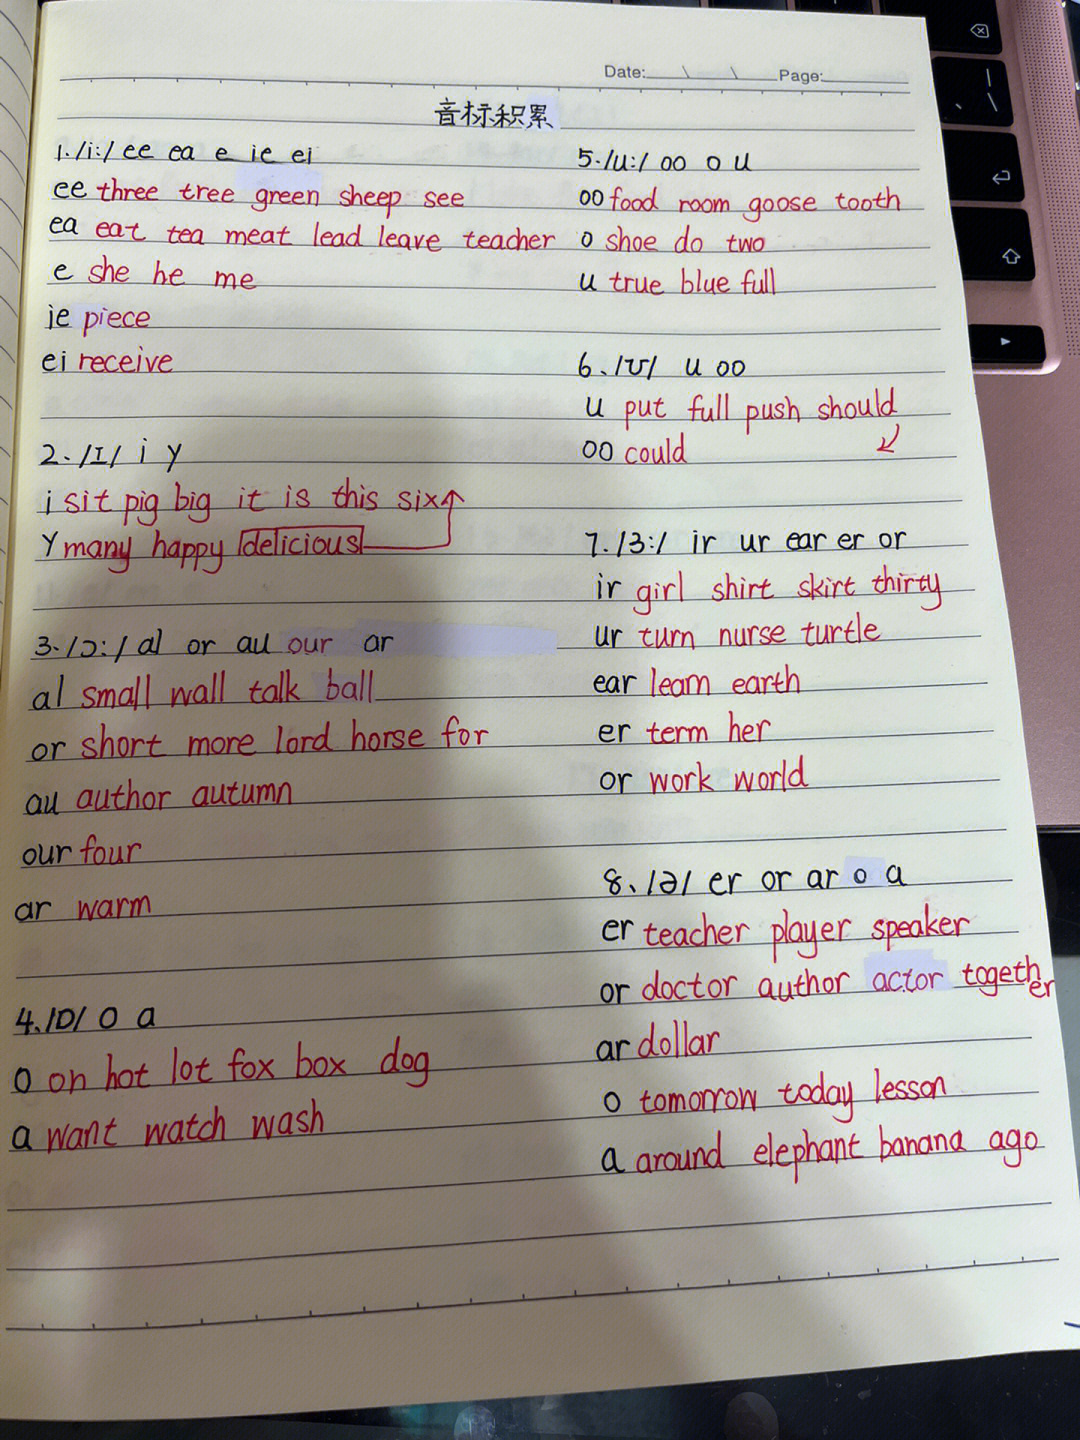 Date: \ \ Page:
音标积累
1./i:/ ee ea e ie ei
ee three tree green sheep see
ea eat tea meat lead leave teacher
e she he me
ie piece
ei receive
2./I/ i y
i sit pig big it is this six
Y many happy delicious
3./ɔ:/ al or au our ar
al small wall talk ball
or short more lord horse for
au author autumn
our four
ar warm
4./ɒ/ o a
o on hot lot fox box dog
a want watch wash
5./u:/ oo o u
oo food room goose tooth
o shoe do two
u true blue full
6./ʊ/ u oo
u put full push should
oo could
7./3:/ ir ur ear er or
ir girl shirt skirt thirty
ur turn nurse turtle
ear learn earth
er term her
or work world
8./ə/ er or ar o a
er teacher player speaker
or doctor author actor together
ar dollar
o tomorrow today lesson
a around elephant banana ago